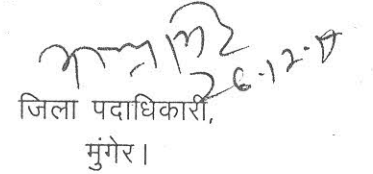 26.12.17
जिला पदाधिकारी,
मुंगेर।